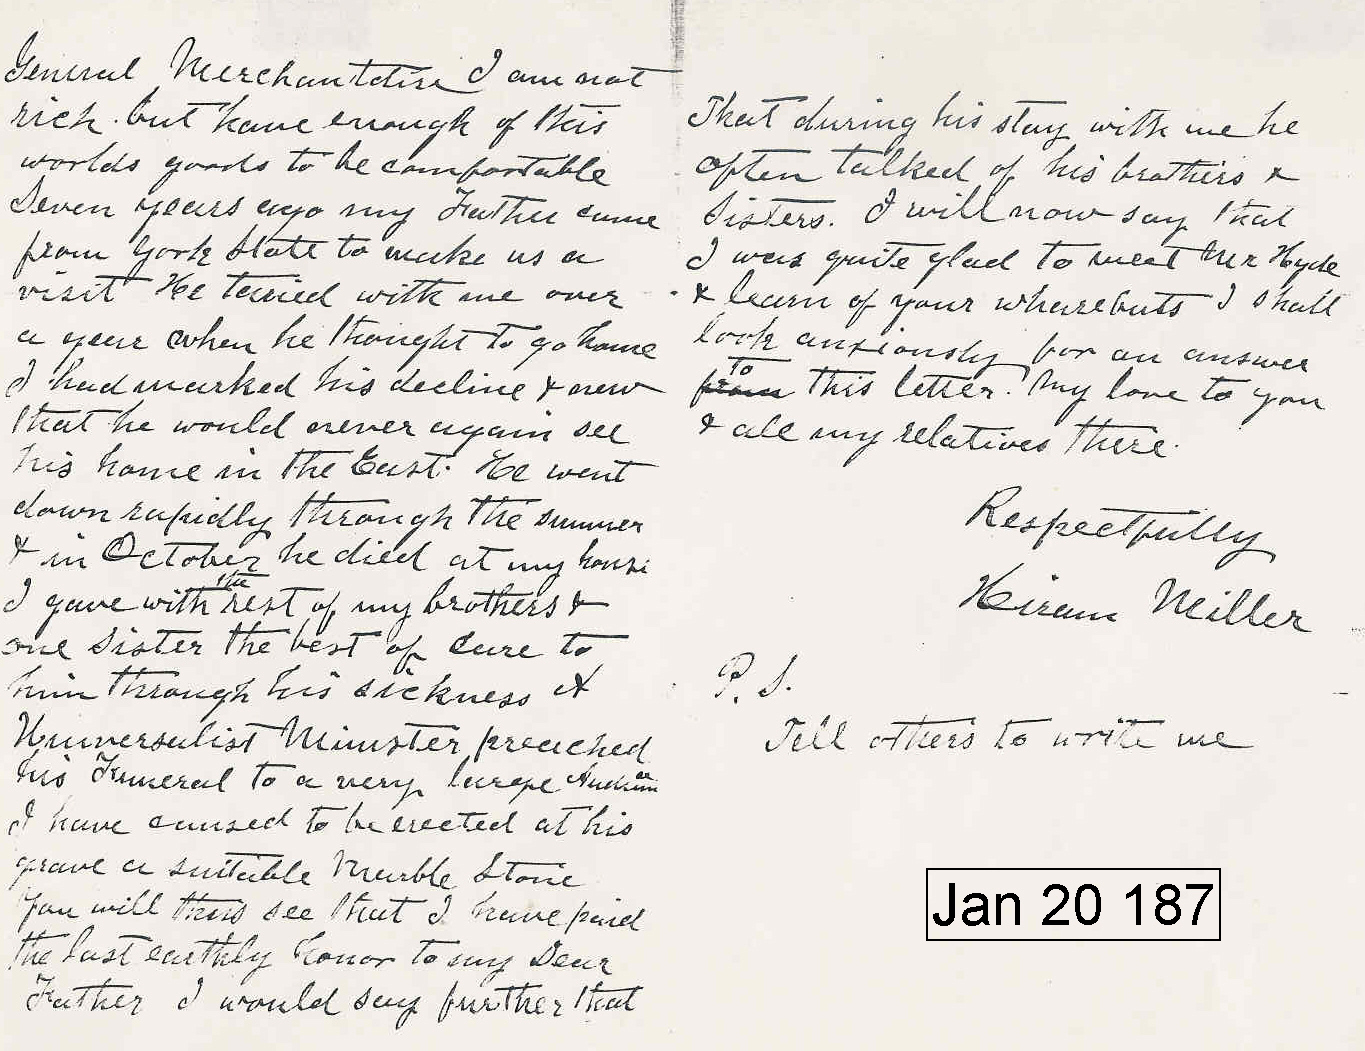 General Merchantdise I am not
rich. but have enough of this
worlds goods to be comfortable
Seven years ago my Father came
from York State to make us a
visit He tarried with me over
a year when he thought to go home
I had marked his decline & new
that he would never again see
his home in the East. He went
down rapidly through the summer
& in October he died at my house
I gave with the rest of my brothers &
one sister the best of care to
him through his sickness A
Universalist Minister preached
his Funeral to a very large
I have caused to be erected at his
grave a suitable Marble Stone
You will thus see that I have paid
the last earthly honor to my Dear
Father I would say further that
That during his stay with me he
often talked of his brothers &
Sisters. I will now say that
I was quite glad to meet Mr Hyde
& learn of your wharebuts I shall
look anxiously for an answer
from to this letter. My love to you
& all my relatives there.
Respectfully
Hiram Miller
P. S.
Tell others to write me
Jan 20 187